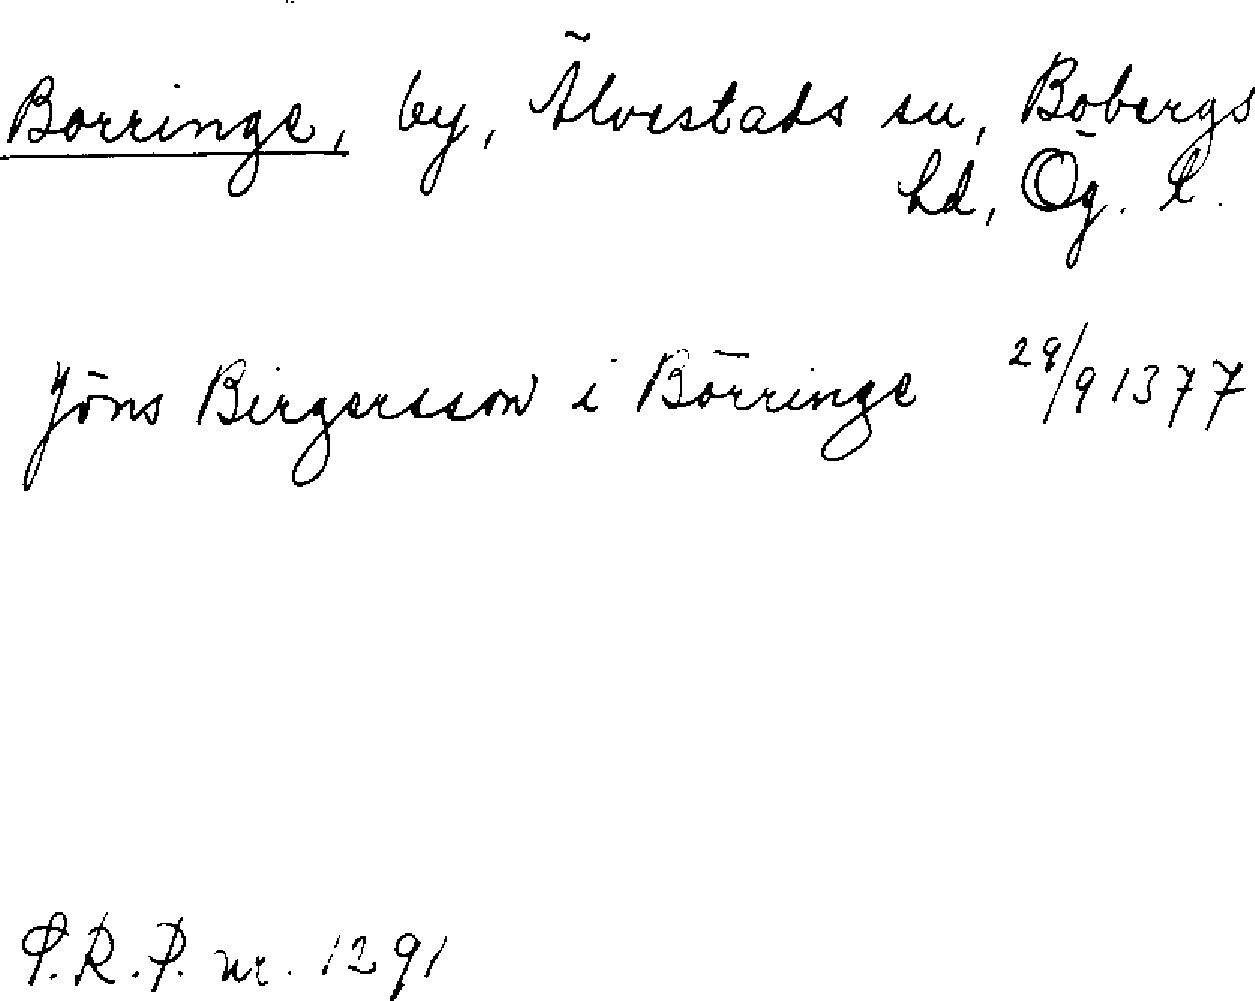 Borringe, by, Älvestads sn, Bobergs
hd, Ög. l.
Jöns Birgersson i Börringe 29/9 1377
P.R.P. nr. 1291